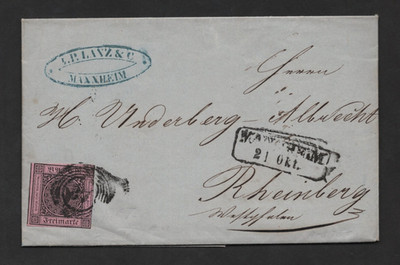 J.P. LANZ & C.
MANNHEIM
Herrn
H. Underberg-Albrecht
MANNHEIM
21 Okt.
Rheinberg
Westphalen
Freimarke